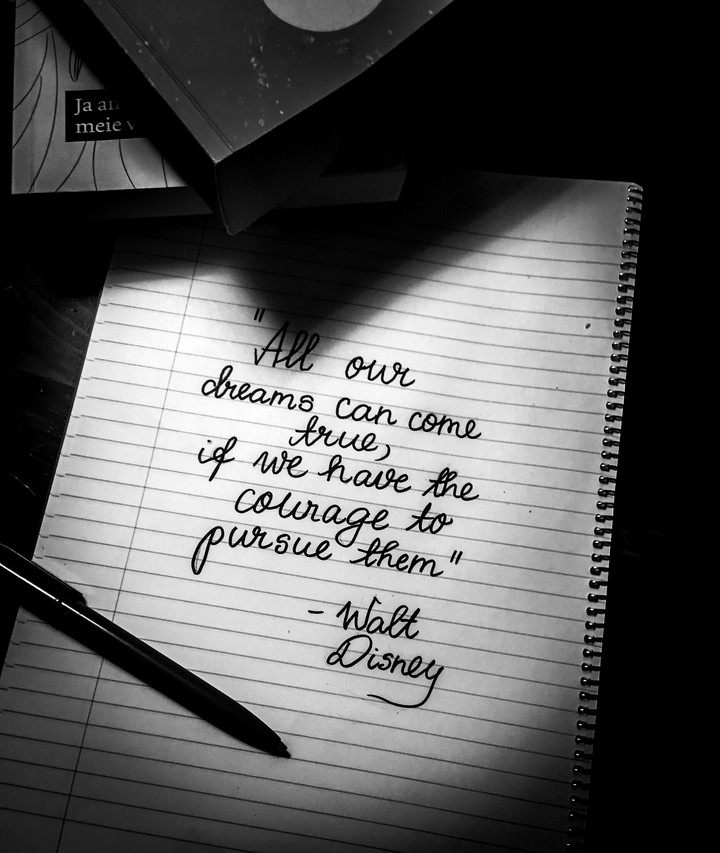 Ja
meie
"All our
dreams can come
true,
if we have the
courage to
pursue them"
- Walt
Disney